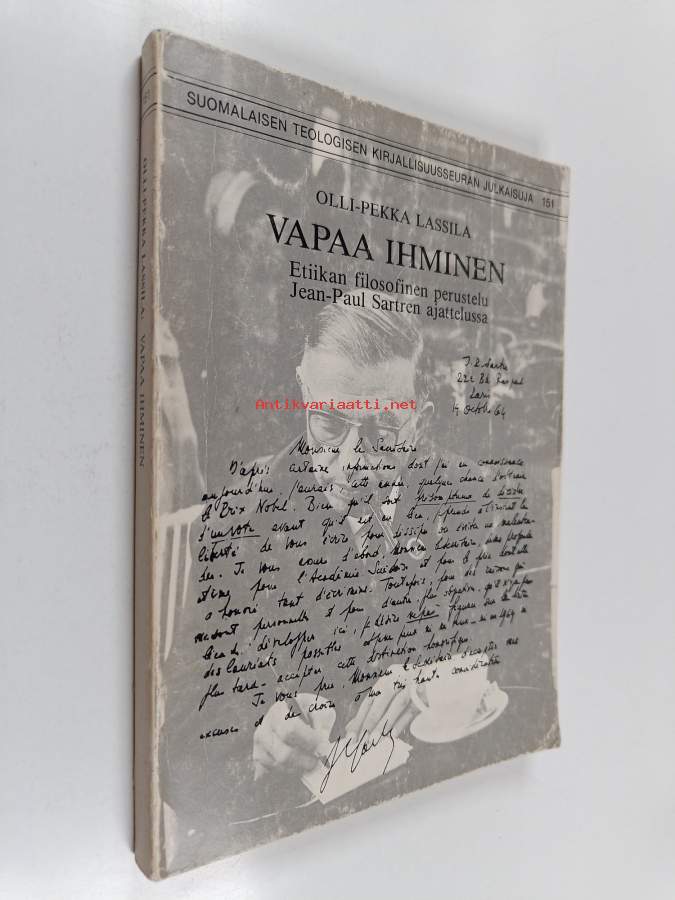 SUOMALAISEN TEOLOGISEN KIRJALLISUUSSEURAN JULKAISUJA 151
OLLI-PEKKA LASSILA
VAPAA IHMINEN
Etiikan filosofinen perustelu
Jean-Paul Sartren ajattelussa
Antikvariaatti.net
Paris
Monsieur le Secrétaire
D'après certaines informations dont j'ai eu connaissance
aujourd'hui, j'aurais, cette année, quelques chances d'obtenir
le Prix Nobel. Bien qu'il soit présomptueux de
d'un vote avant qu'il ait eu lieu, je prends
liberté de vous écrire pour dissiper ou éviter un
Je vous d'abord, Monsieur le Secrétaire, ma profonde
estime pour l'Académie Suédoise et pour le prix dont elle
a honoré tant d'écrivains. Toutefois, pour des raisons qui
me sont personnelles et pour d'autres, plus
lieu de développer ici, je désire ne pas figurer sur la liste
des lauréats possibles et ne peux ni ne veux ni en 1964 ni
plus tard accepter cette distinction honorifique.
Je vous prie, Monsieur le Secrétaire, d'accepter mes
excuses et de croire à ma très haute considération
OLLI-PEKKA LASSILA: VAPAA IHMINEN